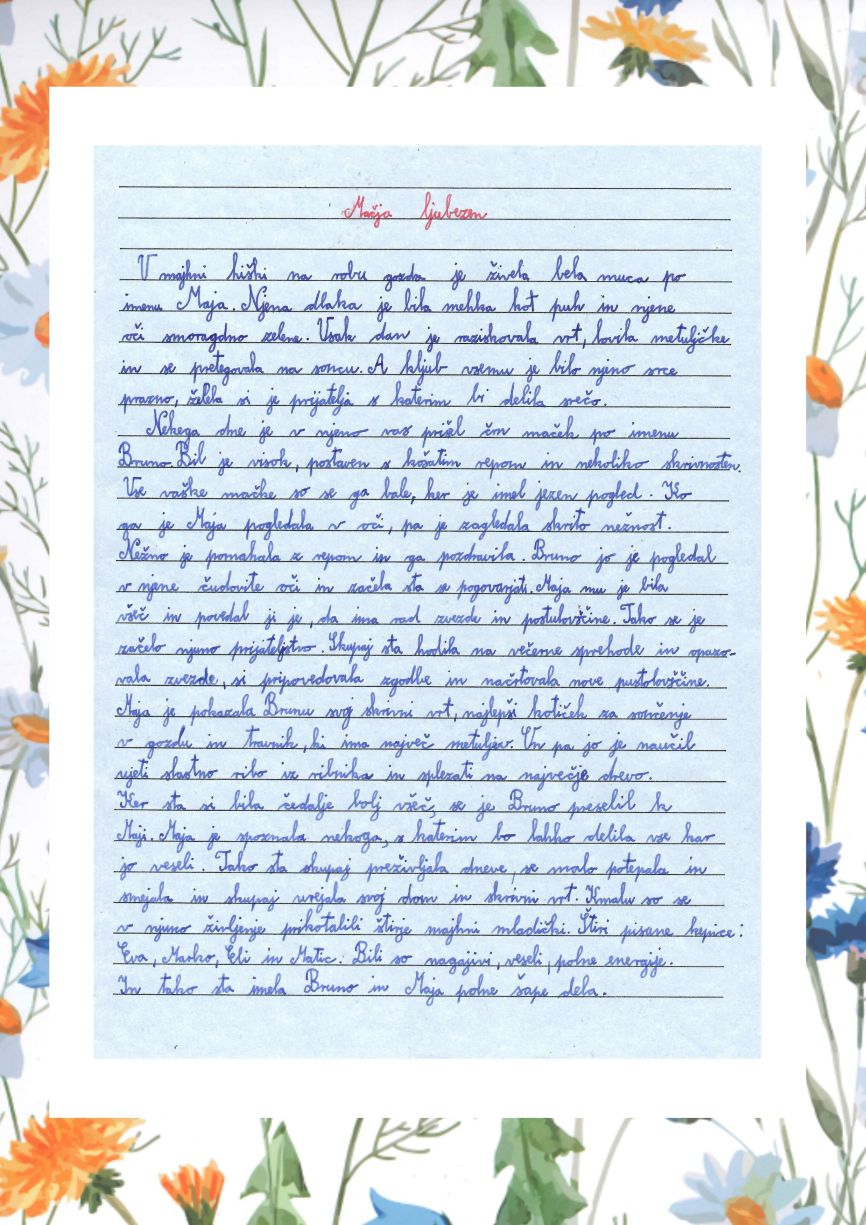 Mačja ljubezen
V majhni hiški na robu gozda je živela bela muca po
imenu Maja. Njena dlaka je bila mehka kot puh in njene
oči smaragdno zelene. Vsak dan je raziskovala vrt, lovila metuljčke
in se pretegovala na soncu. A kljub vsemu je bilo njeno srce
prazno, želela si je prijatelja s katerim bi delila srečo.
Nekega dne je v njeno vas prišel črn maček po imenu
Bruno. Bil je visok, postaven s košatim repom in nekoliko skrivnosten.
Vse vaške mačke so se ga bale, ker je imel jezen pogled. Ko
ga je Maja pogledala v oči, pa je zagledala skrito nežnost.
Nežno je pomahala z repom in ga pozdravila. Bruno jo je pogledal
v njene čudovite oči in začela sta se pogovarjati. Maja mu je bila
všeč in povedal ji je, da ima rad zvezde in postulovščine. Tako se je
začelo njuno prijateljstvo. Skupaj sta hodila na večerne sprehode in opazo-
vala zvezde, si pripovedovala zgodbe in načrtovala nove pustolovščine.
Maja je pokazala Brunu svoj skrivni vrt, najlepši kotiček za sončenje
v gozdu in travnik, ki ima največ metuljev. On pa jo je naučil
ujeti slastno ribo iz ribnika in splezati na največje drevo.
Ker sta si bila čedalje bolj všeč, se je Bruno preselil k
Maji. Maja je spoznala nekoga, s katerim bo lahko delila vse kar
jo veseli. Tako sta skupaj preživljala dneve, se malo potepala in
smejala in skupaj urejala svoj dom in skrivni vrt. Kmalu so se
v njuno življenje prikotalili štirje majhni mladički. Štiri pisane kepice:
Eva, Marko, Eli in Matic. Bili so nagajivi, veseli, polne energije.
In tako sta imela Bruno in Maja polne šape dela.